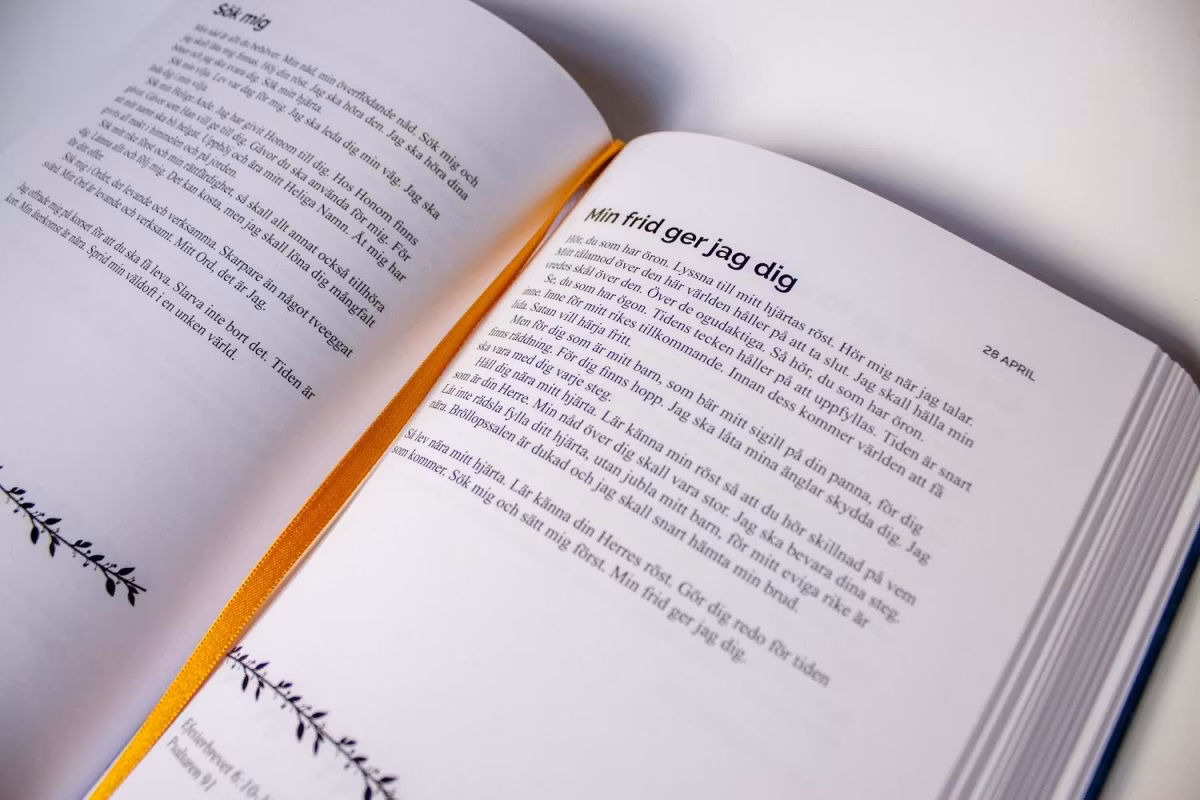 Sök mig
Min nåd är allt du behöver. Min nåd, min överflödande nåd. Sök mig och
jag skall låta mig finnas. Höj din röst. Jag ska höra den. Jag ska höra dina
böner och jag ska svara dig. Sök mitt hjärta.
Sök min vilja. Lev var dag för mig. Jag ska leda dig min väg. Jag ska
leda dig i min vilja.
Sök min Helige Ande. Jag har givit Honom till dig. Hos Honom finns
gåvor. Gåvor som Han vill ge till dig. Gåvor du ska använda för mig. För
att mitt namn ska bli helgat. Upphöj och ära mitt Heliga Namn. Åt mig har
givits all makt i himmelen och på jorden.
Sök mitt rike först och min rättfärdighet, så skall allt annat också tillhöra
dig. Lämna allt och följ mig. Det kan kosta, men jag skall löna dig mångfalt
för ditt offer.
Sök mig i Ordet, det levande och verksamma. Skarpare än något tveeggat
svärd. Mitt Ord är levande och verksamt. Mitt Ord, det är Jag.
Jag offrade mig på korset för att du ska få leva. Slarva inte bort det. Tiden är
kort. Min återkomst är nära. Sprid min väldoft i en unken värld.
28 APRIL
Min frid ger jag dig
Hör, du som har öron. Lyssna till mitt hjärtas röst. Hör mig när jag talar.
Mitt tålamod över den här världen håller på att ta slut. Jag skall hälla min
vredes skål över den. Över de ogudaktiga. Så hör, du som har öron.
Se, du som har ögon. Tidens tecken håller på att uppfyllas. Tiden är snart
inne. Inne för mitt rikes tillkommande. Innan dess kommer världen att få
lida. Satan vill härja fritt.
Men för dig som är mitt barn, som bär mitt sigill på din panna, för dig
finns räddning. För dig finns hopp. Jag ska låta mina änglar skydda dig. Jag
ska vara med dig varje steg.
Håll dig nära mitt hjärta. Lär känna min röst så att du hör skillnad på vem
som är din Herre. Min nåd över dig skall vara stor. Jag ska bevara dina steg.
Låt inte rädsla fylla ditt hjärta, utan jubla mitt barn, för mitt eviga rike är
nära. Bröllopssalen är dukad och jag skall snart hämta min brud.
Så lev nära mitt hjärta. Lär känna din Herres röst. Gör dig redo för tiden
som kommer. Sök mig och sätt mig först. Min frid ger jag dig.
Efesierbrevet 6:10-
Psaltaren 91